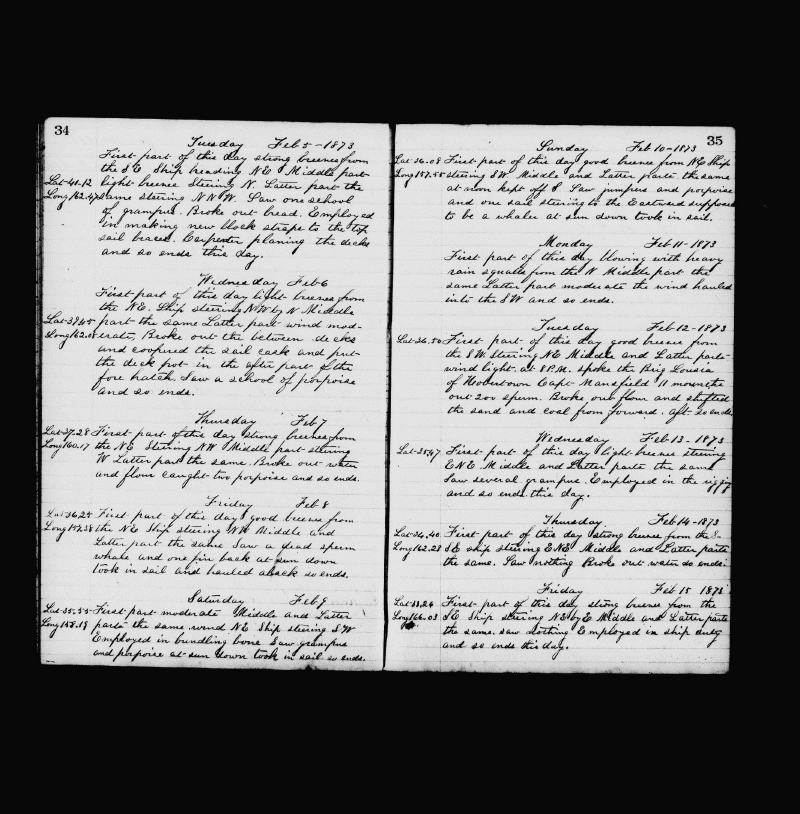 34
Tuesday Feb 5 - 1873
First part of this day strong breeses from
the SE Ship heading NE Middle part
Lat-41-12 light breese Steering N. Latter part the
Long 162.47 same steering NNW. Saw one school
of grampus. Broke out bread. Employed
in making new block straps to the top
sail braces. Carpenter planing the decks
and so ends this day.
Wednesday Feb 6
First part of this day light breeses from
the NE. Ship steering NW by N Middle
part the same Latter part wind mod-
Long 162.08 erate, Broke out the between decks
and coopered the sail cask and put
the deck pot in the after part of the
fore hatch. Saw a school of porpoise
and so ends.
Thursday Feb 7
Lat-37.28 First part of this day strong breeses from
Long 160.17 the NE Steering NW Middle part steering
W Latter part the same. Broke out water
and flour caught two porpoise and so ends.
Friday Feb 8
Lat-36.25 First part of this day good breese from
Long 157.38 the NE Ship steering NW Middle and
Latter part the same Saw a dead sperm
whale and one fin back at sun down
took in sail and hauled aback so ends.
Saturday Feb 9
Lat-35.55 First part moderate Middle and Latter
Long 158.19 parts the same wind NE Ship steering SW
Employed in bundling bone Saw grampus
and porpoise at sun down took in sail so ends.
35
Sunday Feb 10-1873
Lat-36.08 First part of this day good breese from NE Ship
Long 157.55 steering SW. Middle and Latter parts the same
at noon kept off S Saw jumpers and porpoise
and one sail steering to the Eastward supposed
to be a whaler at sun down took in sail.
Monday Feb 11-1873
First part of this day blowing with heavy
rain squalls from the N Middle part the
same Latter part moderate the wind hauled
into the SW and so ends.
Tuesday Feb 12-1873
Lat-36.50 First part of this day good breese from
the SW Steering NE Middle and Latter parts
wind light. at 8 P.M. spoke the Brig Lousia
of Hobertown Capt Mansfield 11 months
out 200 sperm. Broke out flour and shifted
the sand and coal from forward. aft. so ends.
Wednesday Feb 13-1873
Lat-35.47 First part of this day light breese steering
ENE Middle and Latter parts the same
Saw several grampus. Employed in the rigging
and so ends this day.
Thursday Feb 14-1873
Lat-34.40 First part of this day strong breese from the
Long 162.23 SE ship steering ENE Middle and Latter parts
the same. Saw nothing Broke out water so ends.
Friday Feb 15 1873
Lat 33.24 First part of this day strong breese from the
Long 166.03 SE Ship steering NE by E Middle and Latter parts
the same. saw nothing Employed in ship duty
and so ends this day.